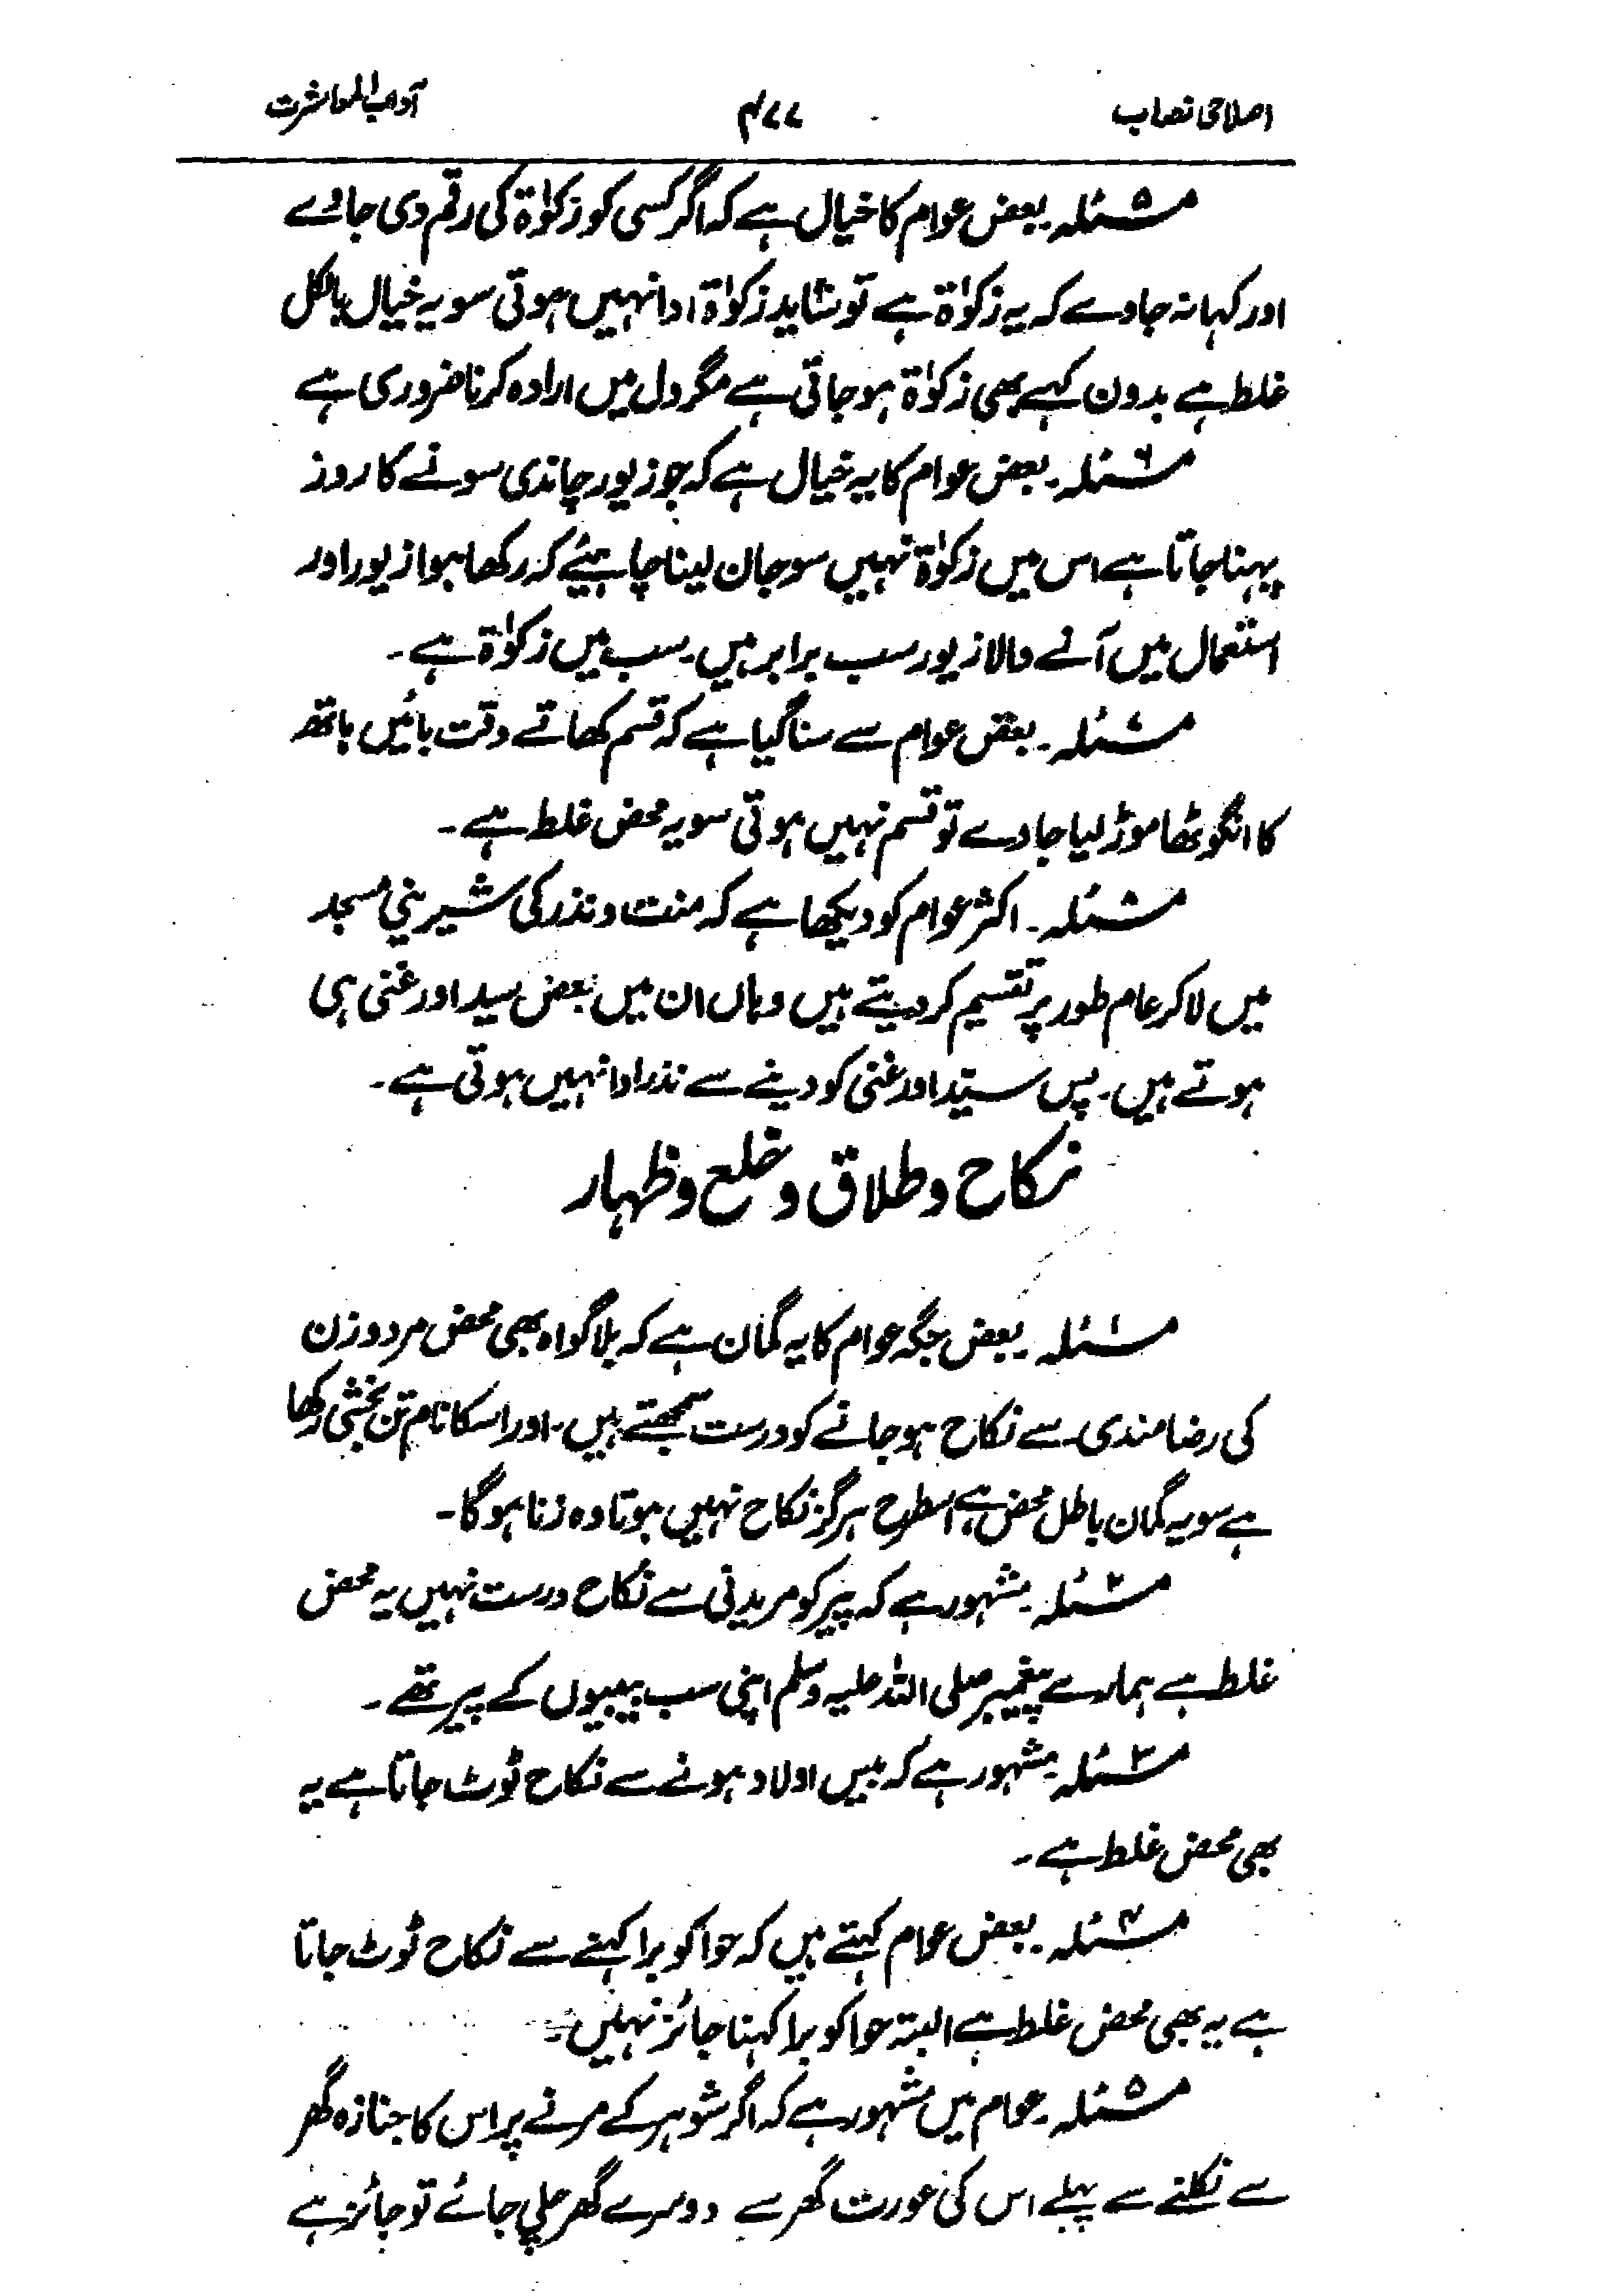 اصلاحی نصاب ۴۷۷ آداب المعاشرت
مسئلہ ۵۔ بعض عوام کا خیال ہے کہ اگر کسی کو زکوٰۃ کی رقم دی جاوے
اور کہا نہ جاوے کہ یہ زکوٰۃ ہے تو شاید زکوٰۃ ادا نہیں ہوتی سو یہ خیال بالکل
غلط ہے بدون کہے بھی زکوٰۃ ہو جاتی ہے مگر دل میں ارادہ کرنا ضروری ہے
مسئلہ ۶۔ بعض عوام کا یہ خیال ہے کہ جو زیور چاندی سونے کا روز
پہنا جاتا ہے اس میں زکوٰۃ نہیں سو جان لینا چاہیئے کہ رکھا ہوا زیور اور
استعمال میں آنے والا زیور سب برابر ہیں۔ سب میں زکوٰۃ ہے۔
مسئلہ ۷۔ بعض عوام سے سنا گیا ہے کہ قسم کھاتے وقت بائیں ہاتھ
کا انگوٹھا موڑ لیا جاوے تو قسم نہیں ہوتی سو یہ محض غلط ہے۔
مسئلہ ۸۔ اکثر عوام کو دیکھا ہے کہ منت و نذر کی شیرینی مسجد
میں لا کر عام طور پر تقسیم کر دیتے ہیں وہاں ان میں بعض سید اور غنی ہی
ہوتے ہیں۔ پس سیّد اور غنی کو دینے سے نذر ادا نہیں ہوتی ہے۔
نکاح و طلاق و خلع و ظہار
مسئلہ ۱۔ بعض جگہ عوام کا یہ گمان ہے کہ بلا گواہ بھی محض مرد و زن
کی رضا مندی سے نکاح ہو جانے کو درست سمجھتے ہیں۔ اور اسکا نام تن بخشی رکھا
ہے سو یہ گمان باطل محض ہے اسطرح ہرگز نکاح نہیں ہوتا وہ زنا ہوگا۔
مسئلہ ۲۔ مشہور ہے کہ پیر کو مریدنی سے نکاح درست نہیں یہ محض
غلط ہے ہمارے پیغمبر صلی اللہ علیہ وسلم اپنی سب بیبیوں کے پیر تھے۔
مسئلہ ۳۔ مشہور ہے کہ بیس اولاد ہونے سے نکاح ٹوٹ جاتا ہے یہ
بھی محض غلط ہے۔
مسئلہ ۴۔ بعض عوام کہتے ہیں کہ حوا کو برا کہنے سے نکاح ٹوٹ جاتا
ہے یہ بھی محض غلط ہے البتہ حوا کو برا کہنا جائز نہیں۔
مسئلہ ۵۔ عوام میں مشہور ہے کہ اگر شوہر کے مرنے پر اس کا جنازہ گھر
سے نکلنے سے پہلے اس کی عورت گھر سے دوسرے گھر چلی جائے تو جائز ہے